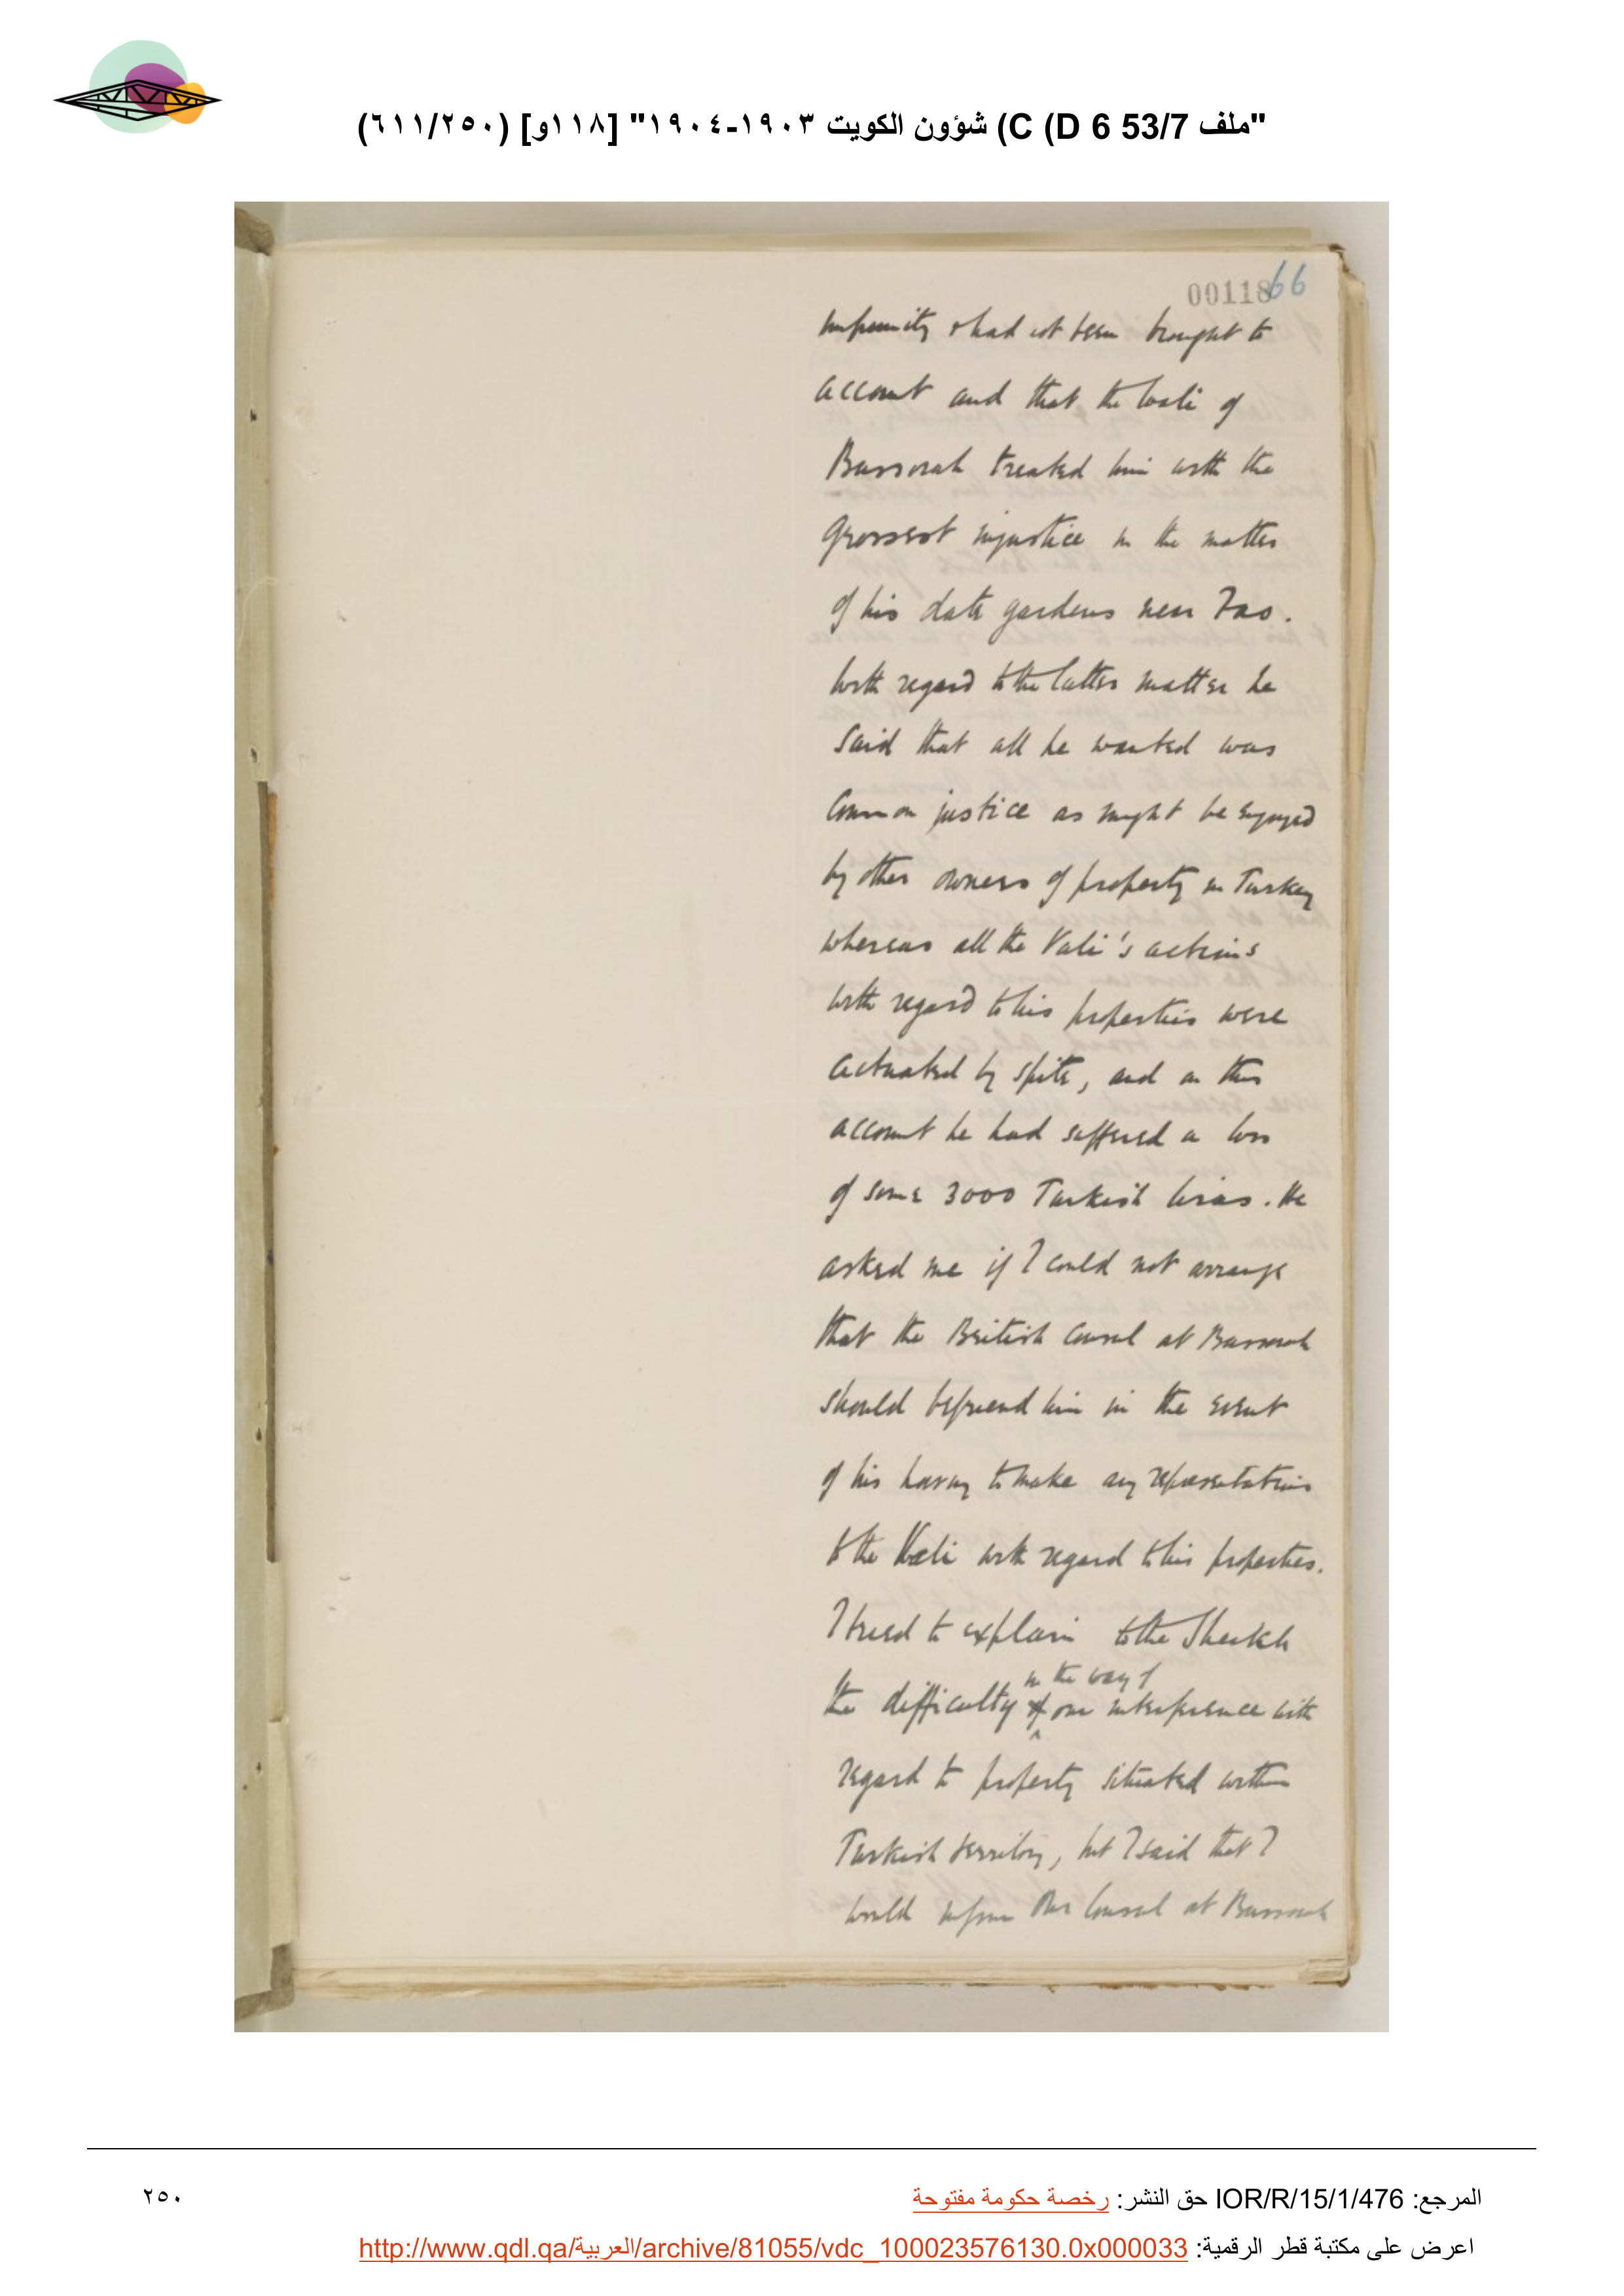 "ملف 53/7 D 6) C) شؤون الكويت ١٩٠٣-١٩٠٤" [١١٨و] (٢٥٠/٦١١)
00118
66
impunity & had not been brought to
account and that the Wali of
Bussorah treated him with the
grossest injustice in the matter
of his date gardens near Fao.
With regard to the latter matter he
said that all he wanted was
Common justice as might be enjoyed
by other owners of property in Turkey
whereas all the Vali's actions
with regard to his properties were
actuated by spite, and on this
account he had suffered a loss
of some 3000 Turkish liras. He
asked me if I could not arrange
that the British Consul at Bussorah
should befriend him in the event
of his having to make any representations
to the Vali with regard to his properties.
I tried to explain to the Sheikh
in the way of
the difficulty of our interference with
regard to property situated within
Turkish territory, but I said that I
would inform our Consul at Bussorah
المرجع: IOR/R/15/1/476 حق النشر: رخصة حكومة مفتوحة
٢٥٠
اعرض على مكتبة قطر الرقمية: http://www.qdl.qa/العربية/archive/81055/vdc_100023576130.0x000033